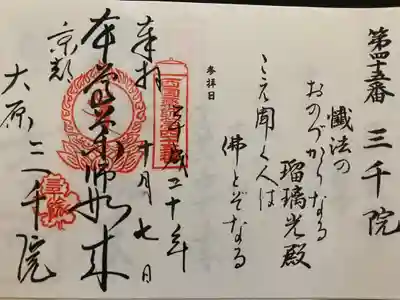 第四十五番 三千院
懴法の
おのづからなる
瑠璃光殿
こえ聞く人は
佛とぞなる
参拝日
平成二十年
十月七日
奉拝
本尊薬師如来
京都
大原 三千院